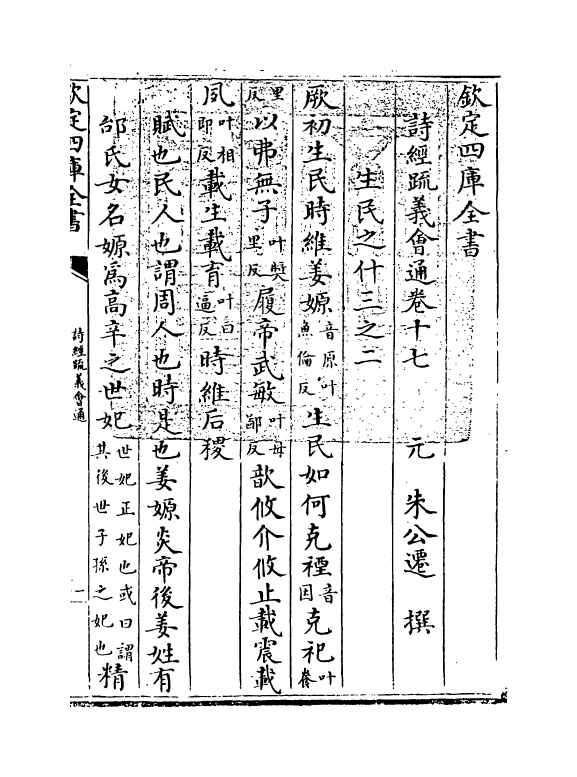 欽定四庫全書
詩經疏義會通卷十七　元　朱公遷　撰
生民之什三之二
厥初生民時維姜嫄音原叶魚倫反生民如何克禋音因克祀叶養
里反以弗無子叶奬里反履帝武敏叶母鄙反歆攸介攸止載震載
夙叶相即反載生載育叶日逼反時維后稷
賦也民人也謂周人也時是也姜嫄炎帝後姜姓有
邰氏女名嫄為高辛之世妃世妃正妃也或曰謂其後世子孫之妃也精
欽定四庫全書
詩經疏義會通
一